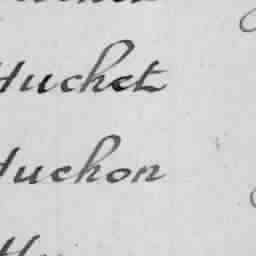 Huchet
Huchon